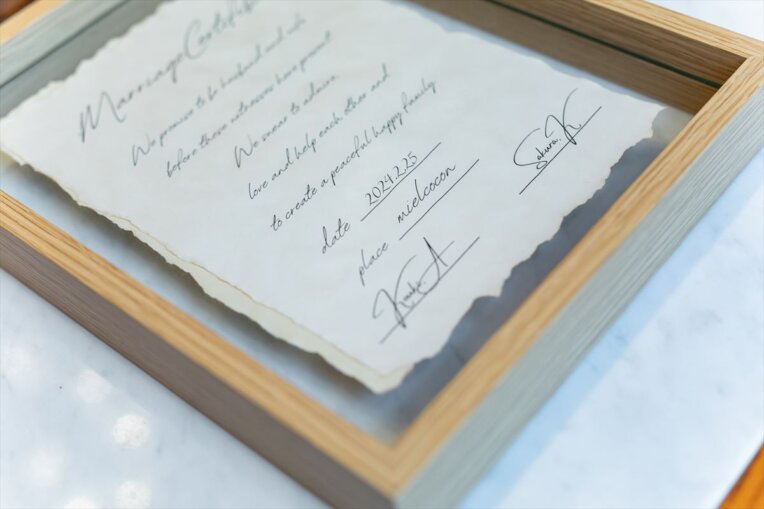 Marriage Certific
We promise to be husband and wife
before these witnesses here present
We swear to admire,
love and help each other and
to create a peaceful happy family.
date 2024.2.25
place mielcocon
A
Sakura. K.